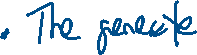 . The generate